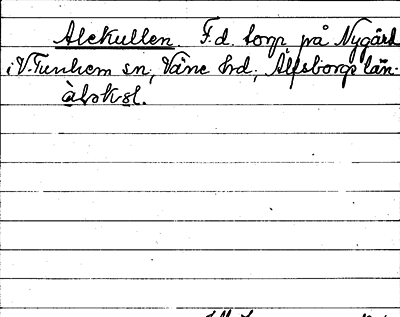 Alekullen F.d. torp på Nygård
i V. Tunhem sn, Väne hd, Älfsborgs län.